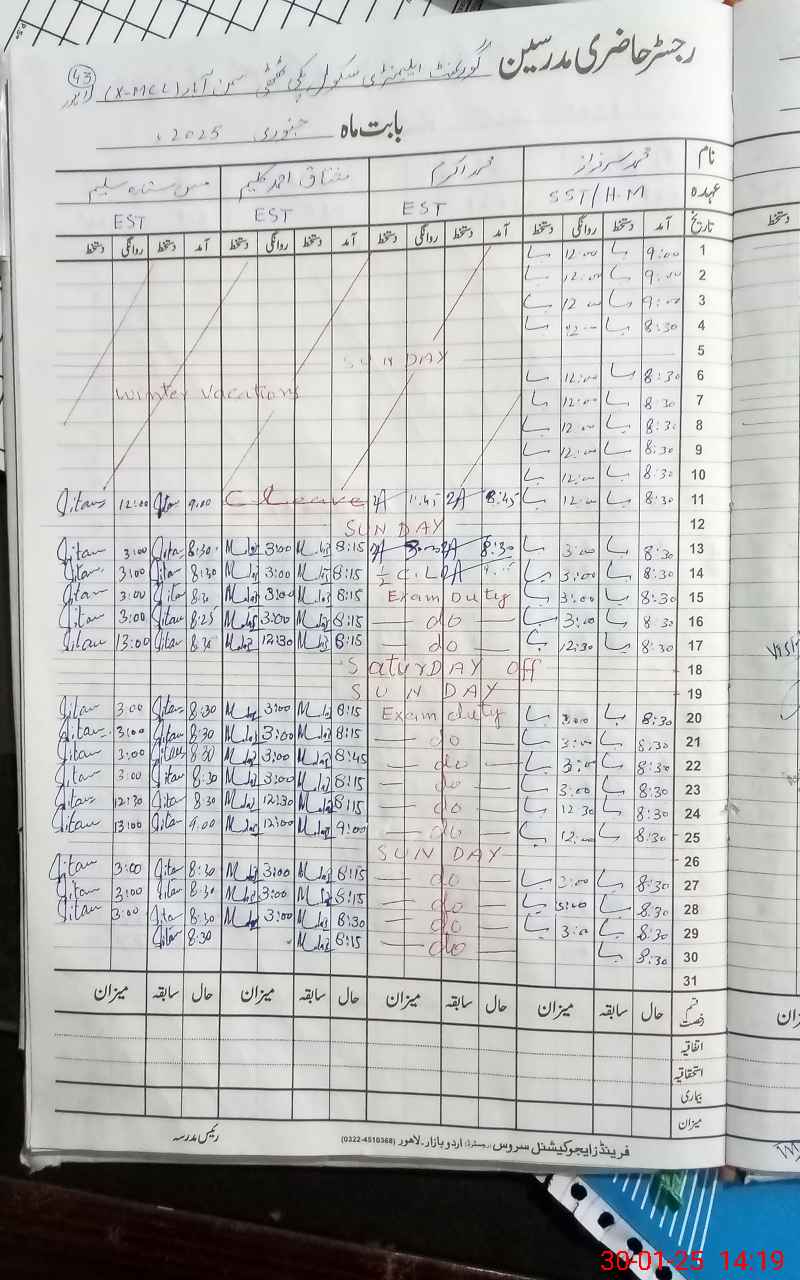 رجسٹر حاضری مدرسین گورنمنٹ ایلیمنٹری سکول پکی ٹھٹھی سمن آباد (X-MCL) لاہور
43
بابت ماہ جنوری 2025ء
نام محمد سرفراز محمد اکرم مشتاق احمد کلیم مس ستارہ سلیم
عہدہ SST/H.M EST EST EST
تاریخ آمد دستخط روانگی دستخط آمد دستخط روانگی دستخط آمد دستخط روانگی دستخط آمد دستخط روانگی دستخط
1 9:00 12:00
2 9:00 12:00
3 9:00 12:00
4 8:30 12:00
5 SUNDAY
6 8:30 12:00
Winter Vacations
7 8:30 12:00
8 8:30 12:00
9 8:30 12:00
10 8:30 12:00
11 8:45 11:45 C Leave 9:00 12:00
12 SUNDAY
13 8:30 3:00 8:30 3:00 8:15 3:00 8:30 3:00
14 8:30 3:00 ½ C.L 8:15 3:00 8:30 3:00
15 8:30 3:00 Exam Duty 8:15 3:00 8:30 3:00
16 8:30 3:00 — do — 8:15 3:00 8:25 3:00
17 8:30 12:30 — do — 8:15 12:30 8:30 13:00
18 SatuRDAY off
19 SUNDAY
20 8:30 3:00 Exam duty 8:15 3:00 8:30 3:00
21 8:30 3:00 — do — 8:15 3:00 8:30 3:00
22 8:30 3:00 — do — 8:45 3:00 8:30 3:00
23 8:30 3:00 — do — 8:15 3:00 8:30 3:00
24 8:30 12:30 — do — 8:15 12:30 8:30 12:30
25 8:30 12:00 — do — 9:00 12:00 9:00 13:00
26 SUNDAY
27 8:30 3:00 — do — 8:15 3:00 8:30 3:00
28 8:30 3:00 — do — 8:15 3:00 8:30 3:00
29 8:30 3:00 — do — 8:30 3:00 8:30 3:00
30 8:30 — do — 8:15 8:30
31
قسم رخصت حال سابقہ میزان حال سابقہ میزان حال سابقہ میزان حال سابقہ میزان
اتفاقیہ
استحقاقیہ
بیماری
میزان
فرینڈز ایجوکیشنل سروس (رجسٹرڈ) اردو بازار۔ لاہور (0322-4510368) رئیس مدرسہ
30-01-25 14:19